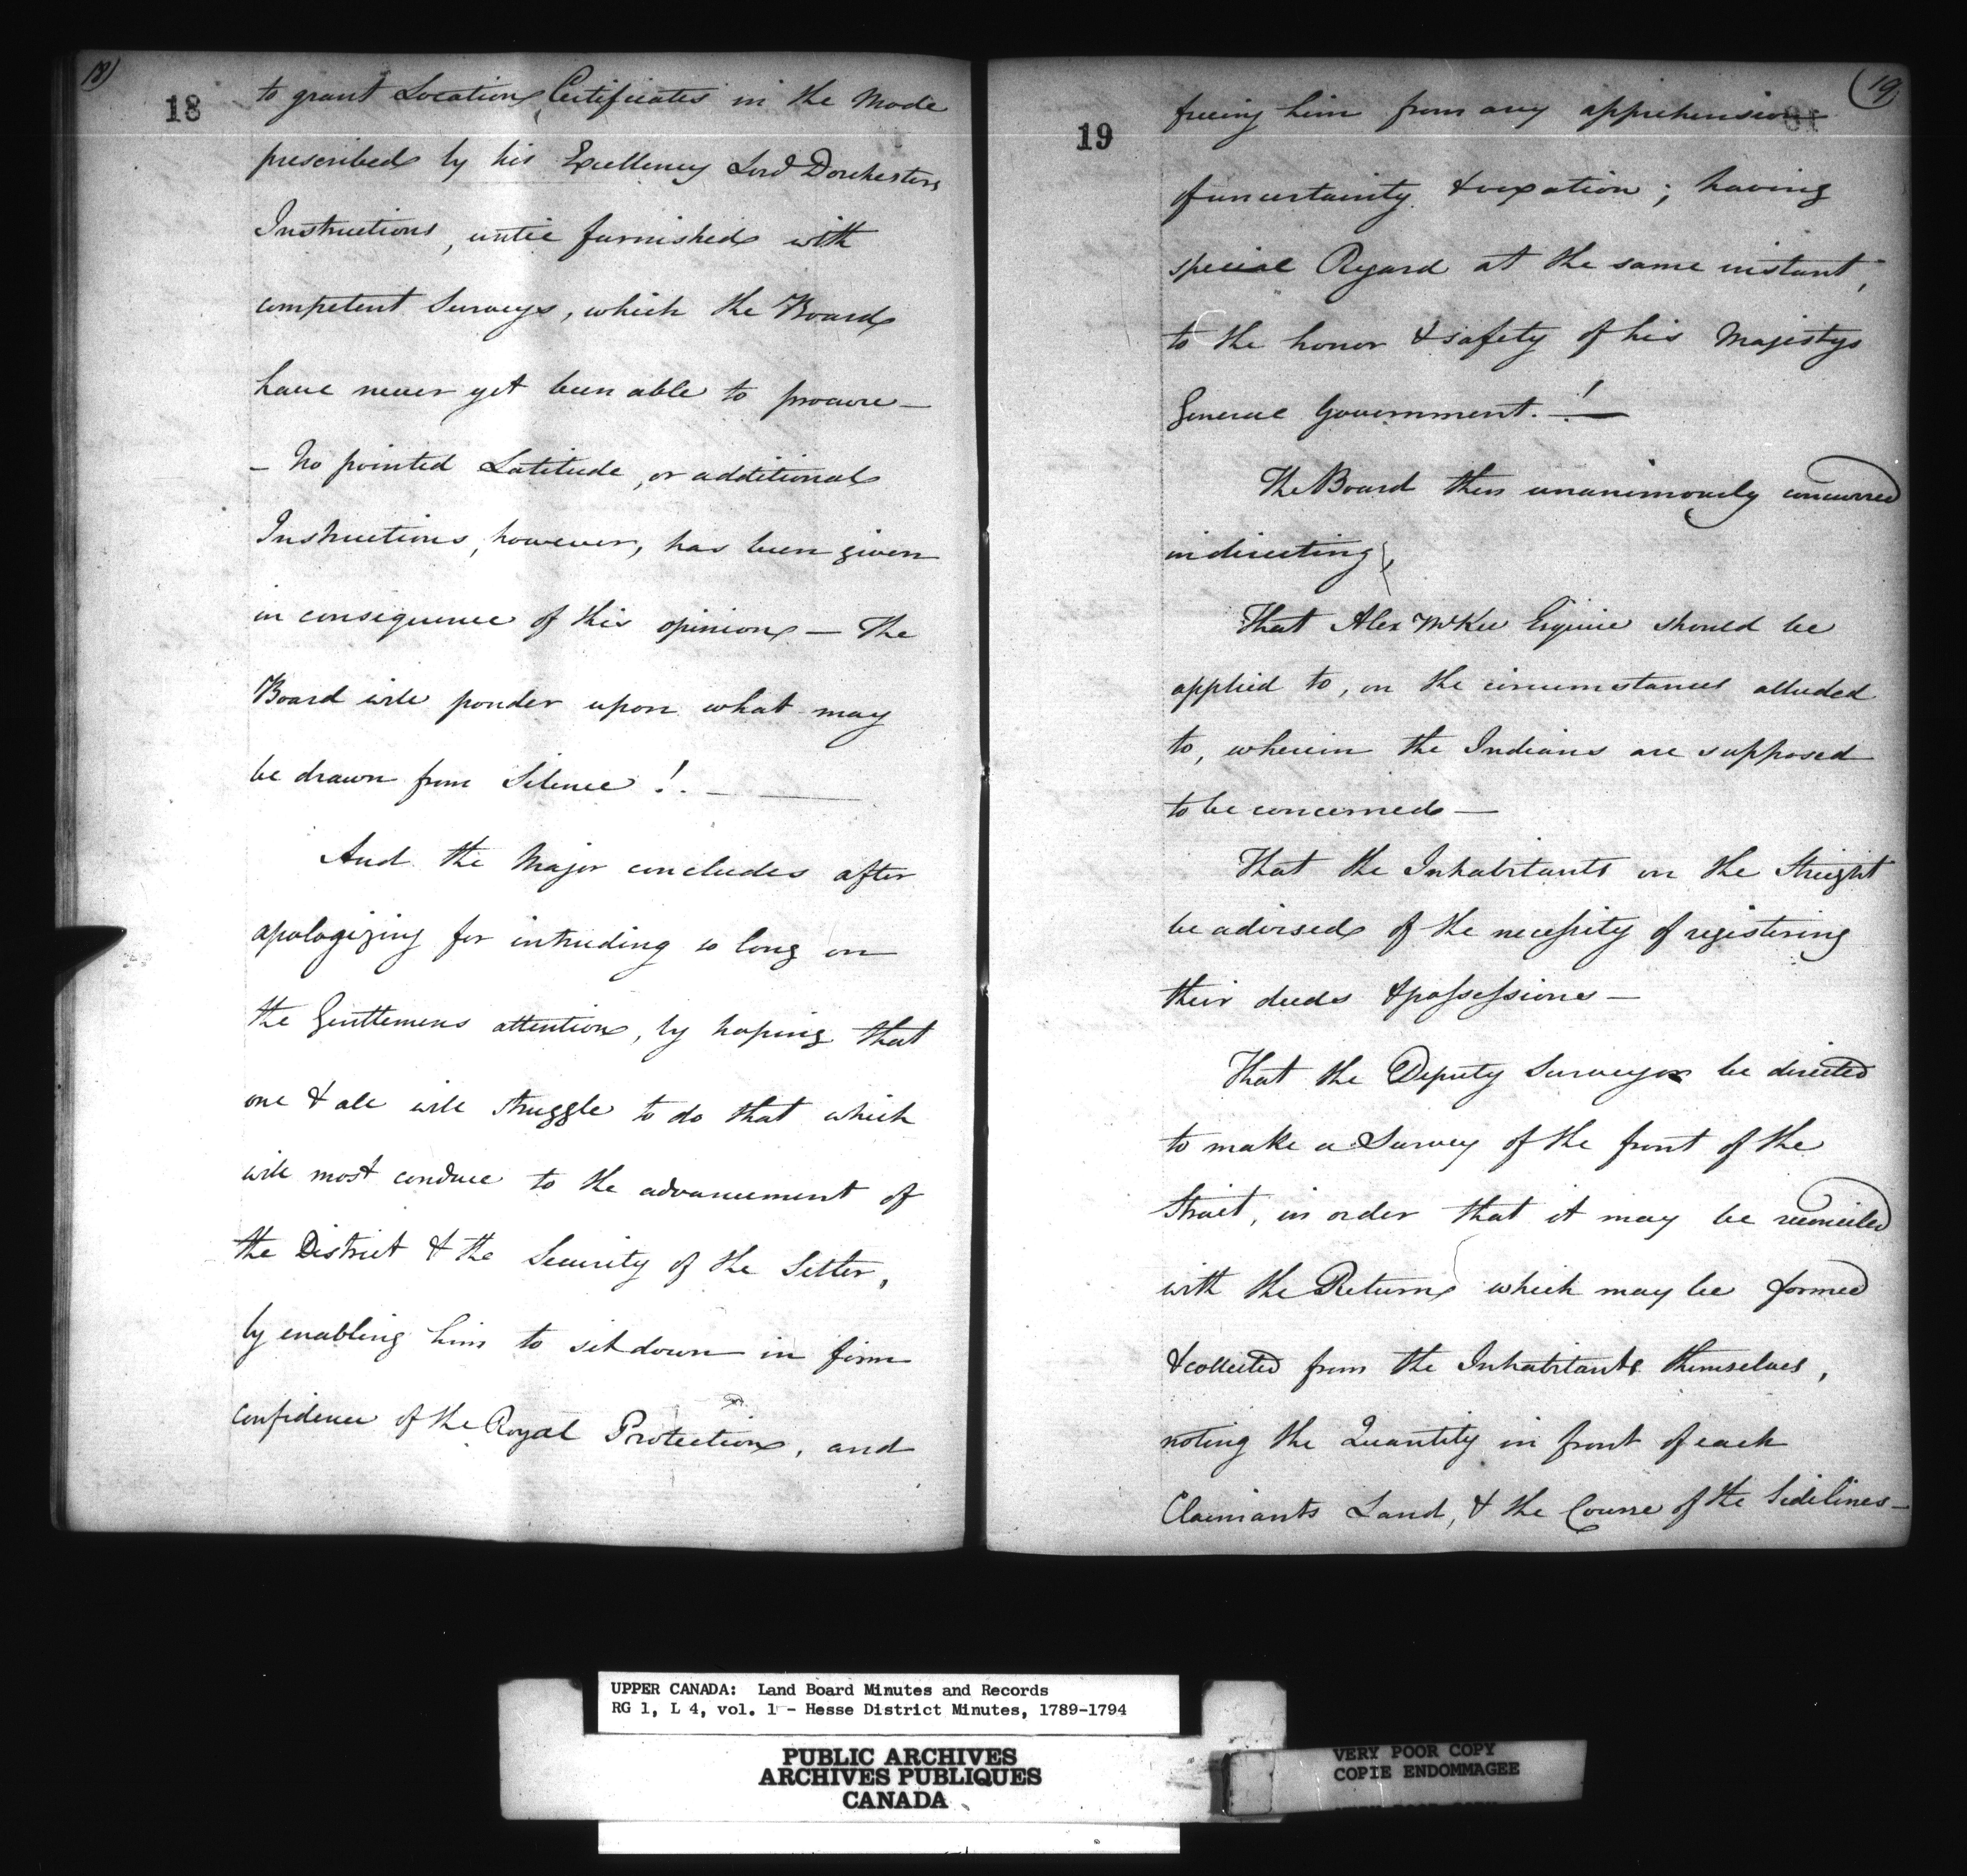 18)
18
to grant Location Certificates in the Mode
prescribed by his Excellency Lord Dorchesters
Instructions, until furnished with
competent Surveys, which the Board
have never yet been able to procure —
— No pointed Latitude, or additional
Instructions, however, has been given
in consequence of this opinion — The
Board will ponder upon what may
be drawn from Silence !. —
And the Major concludes after
apologizing for intruding so long on
the Gentlemens attention, by hoping that
one & all will struggle to do that which
will most conduce to the advancement of
the District & the Security of the Setler,
by enabling him to sit down in firm
confidence of the Royal Protection, and
19
19
freeing him from any apprehension
of uncertainity & vexation ; having
special Regard at the same instant,
to the honor & safety of his Majestys
General Government. ! —
The Board then unanimously concurred
in directing,
That Alex McKee Esquire should be
applied to, on the circumstances alluded
to, wherein the Indians are supposed
to be concerned —
That the Inhabitants on the Streight
be advised of the necessity of registering
their deeds & possessions —
That the Deputy Surveyor be directed
to make a Survey of the front of the
Strait, in order that it may be reconciled
with the Return which may be formed
& collected from the Inhabitants themselves,
noting the Quantity in front of each
Claimants Land, & the Course of the Sidelines —
UPPER CANADA: Land Board Minutes and Records
RG 1, L 4, vol. 1 - Hesse District Minutes, 1789-1794
PUBLIC ARCHIVES
ARCHIVES PUBLIQUES
CANADA
VERY POOR COPY
COPIE ENDOMMAGEE